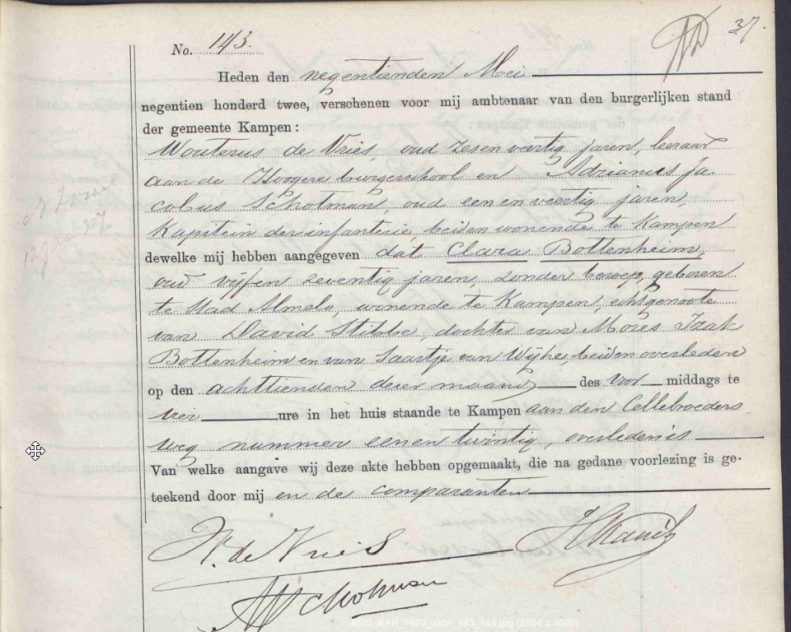 37.
No. 143.
Heden den negentienden Mei
negentien honderd twee, verschenen voor mij ambtenaar van den burgerlijken stand
der gemeente Kampen:
Wouterus de Vries, oud zesenveertig jaren, leeraar
aan de Hoogere burgerschool en Adrianus Ja-
cobus Schotman, oud een en veertig jaren
Kapitein der infanterie, beiden wonende te Kampen
dewelke mij hebben aangegeven dat Clara Bottenheim,
oud vijf en zeventig jaren, zonder beroep, geboren
te Stad Almelo, wonende te Kampen, echtgenoote
van David Stibbe, dochter van Mozes Izak
Bottenheim en van Saartje van Wijhe, beiden overleden
op den achttienden dezer maand, des voor middags te
vier ure in het huis staande te Kampen aan den Cellebroeders
weg nummer eenentwintig, overleden is
Van welke aangave wij deze akte hebben opgemaakt, die na gedane voorlezing is ge-
teekend door mij en de comparanten
W. de Vries
AJSchotman